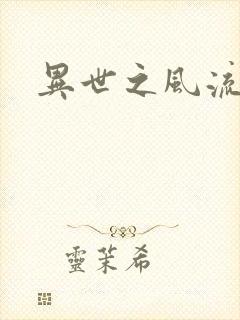 異世之風流
靈茉希